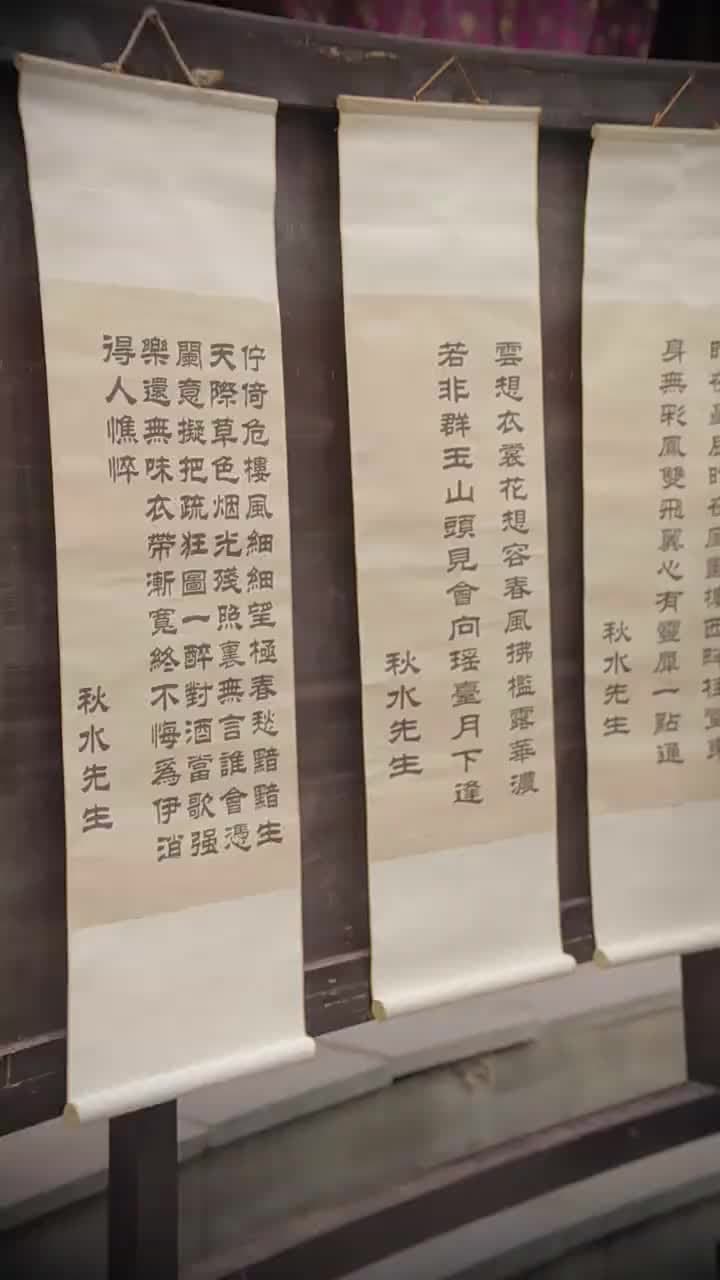 身無彩鳳雙飛翼心有靈犀一點通
秋水先生
雲想衣裳花想容春風拂檻露華濃
若非群玉山頭見會向瑶臺月下逢
秋水先生
佇倚危樓風細細望極春愁黯黯生
天際草色烟光殘照裏無言誰會憑
闌意擬把疏狂圖一醉對酒當歌强
樂還無味衣帶漸寬終不悔爲伊消
得人憔悴
秋水先生